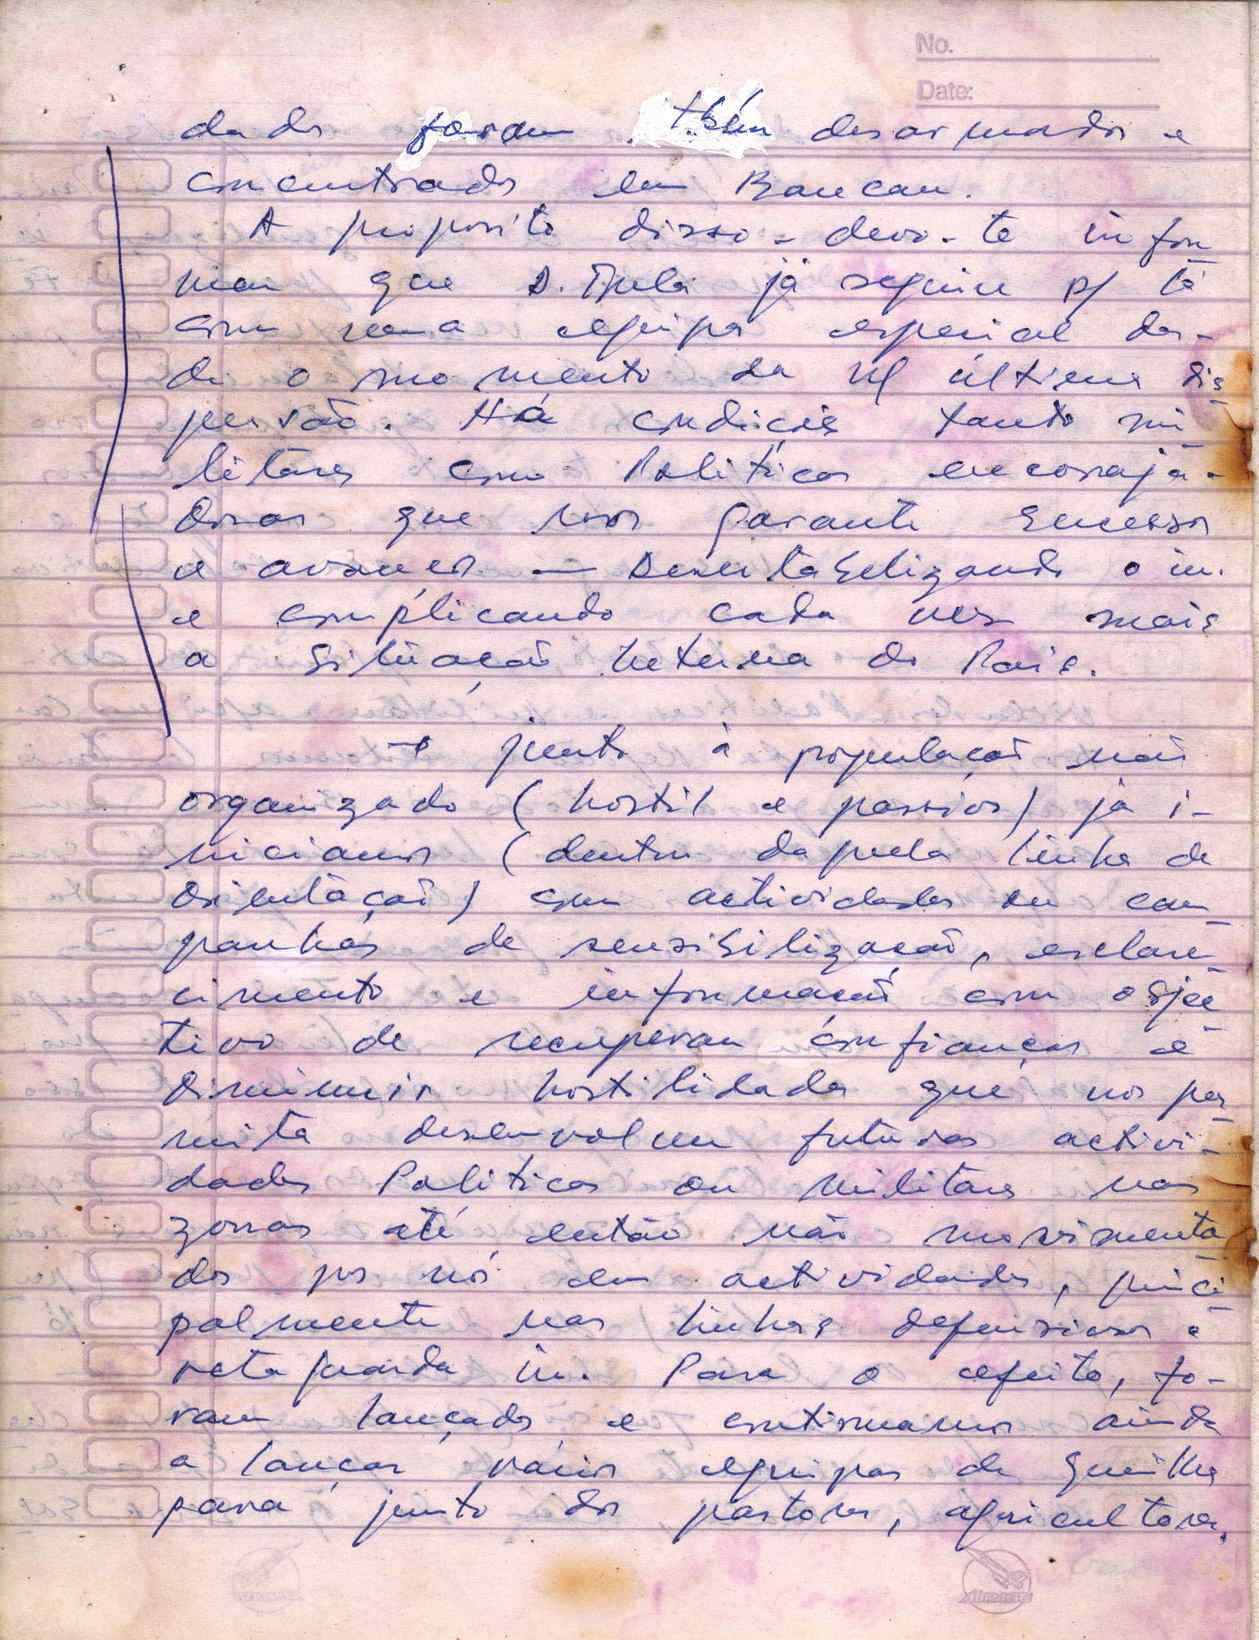 No.
Date:
dado foram tbém desarmados e
concentrados em Baucau.
A proposito disso - devo-te infor
mar que D. Mula já seguiu p/ lá
com uma equipa especial des-
de o momento da n/ última dis
persão. Há condições tanto mi
litares como Politicas encoraja-
doras que nos garante sucessos
e avanços — Desestabelizando o in.
e complicando cada vez mais
a situação interna do Pais.
→ junto à população não
organizado (hostil e passivo) já i-
niciamos (dentro daquela linha de
orientação) com actividades ou cam
panhas de sensibilização, esclare
cimento e informação com objec
tivo de recuperar confianças e
diminuir hostilidades que nos per
mita desenvolver futuras activi-
dades Politicas ou militares nas
zonas até então não movimenta
dos por nós em actividades, princi
palmente nas linhas defensivas e
retaguarda in. Para o efeito, fo-
ram lançados e continuamos ainda
a lançar várias equipas de guerilha
para junto dos pastores, agricultores,